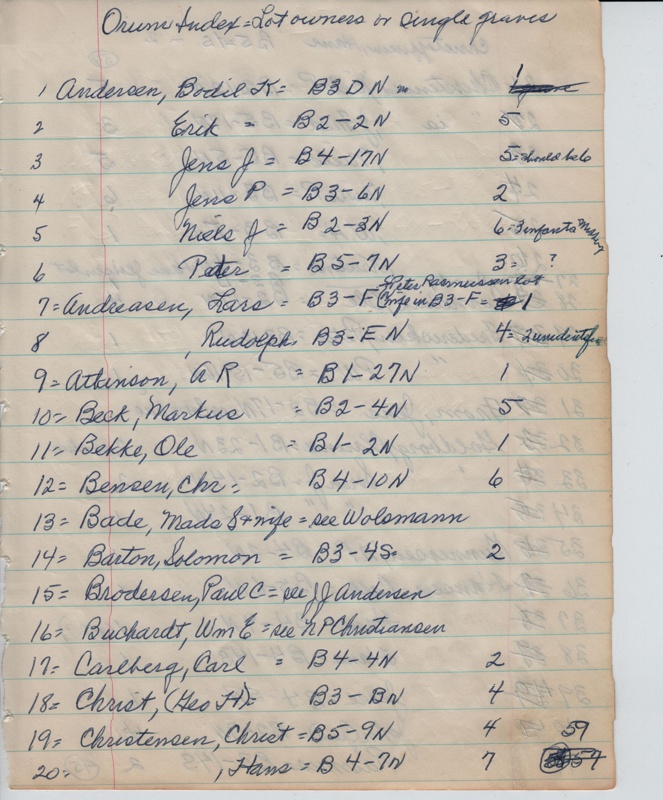 Orum Index = Lot owners or single graves
1 Andersen, Bodil K = B3 D N 1
2 Erik = B2-2N 5
3 Jens J = B4-17N 5 = should be 6
4 Jens P = B3-6N 2
5 Niels J = B2-3N 6 = 3 infants missing
6 Peter = B5-7N 3 = ?
Peter Rasmussen lot
7 = Andreasen, Lars = B3-F in B3-F = 1
8 , Rudolph B3-E N 4 = 2 unidentif
9 = Atkinson, A R = B1-27N 1
10 = Beck, Markus = B2-4N 5
11 = Bekke, Ole = B1-2N 1
12 = Bensen, Chr = B4-10N 6
13 = Bade, Mads & wife = see Wolsmann
14 = Barton, Solomon = B3-4S 2
15 = Brodersen, Paul C = see J J Andersen
16 = Buchardt, Wm E = see N P Christiansen
17 = Carlberg, Carl = B4-4N 2
18 = Christ, (Geo H) = B3-BN 4
19 = Christensen, Christ = B5-9N 4 59
20 = , Hans = B4-7N 7 57